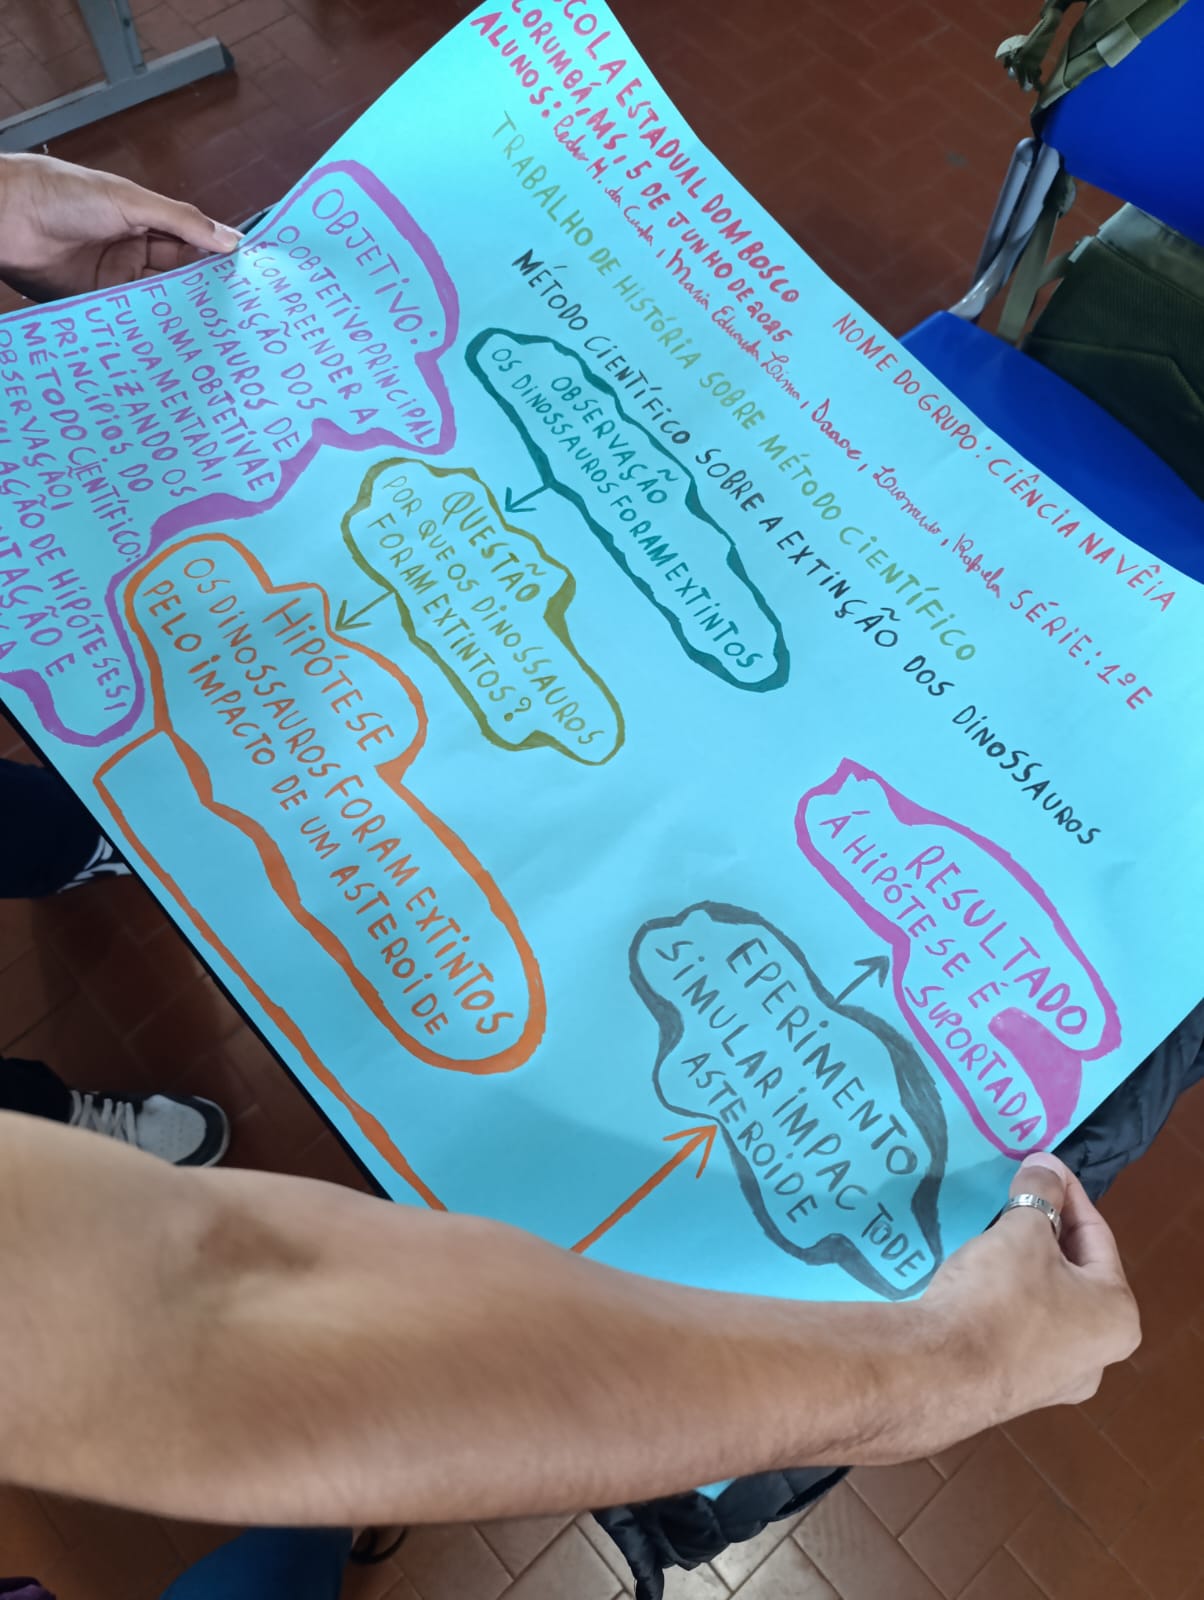 COLA ESTADUAL DOM BOSCO
CORUMBÁ, MS, 5 DE JUNHO DE 2025
ALUNOS: Pedro H. da Cunha, Maria Eduarda Lima, Leonardo, Rafaela SÉRIE: 1º E
NOME DO GRUPO: CIÊNCIA NA VÊIA
TRABALHO DE HISTÓRIA SOBRE MÉTODO CIENTÍFICO
MÉTODO CIENTÍFICO SOBRE A EXTINÇÃO DOS DINOSSAUROS
OBJETIVO:
O OBJETIVO PRINCIPAL
É COMPREENDER A
EXTINÇÃO DOS
DINOSSAUROS DE
FORMA OBJETIVA E
FUNDAMENTADA,
UTILIZANDO OS
PRINCÍPIOS DO
MÉTODO CIENTÍFICO:
OBSERVAÇÃO,
AÇÃO DE HIPÓTESES,
NTAÇÃO E
OBSERVAÇÃO
OS DINOSSAUROS FORAM EXTINTOS
QUESTÃO
POR QUE OS DINOSSAUROS
FORAM EXTINTOS?
HIPÓTESE
OS DINOSSAUROS FORAM EXTINTOS
PELO IMPACTO DE UM ASTEROIDE
EPERIMENTO
SIMULAR IMPACTO DE
ASTEROIDE
RESULTADO
Á HIPÓTESE É
SUPORTADA